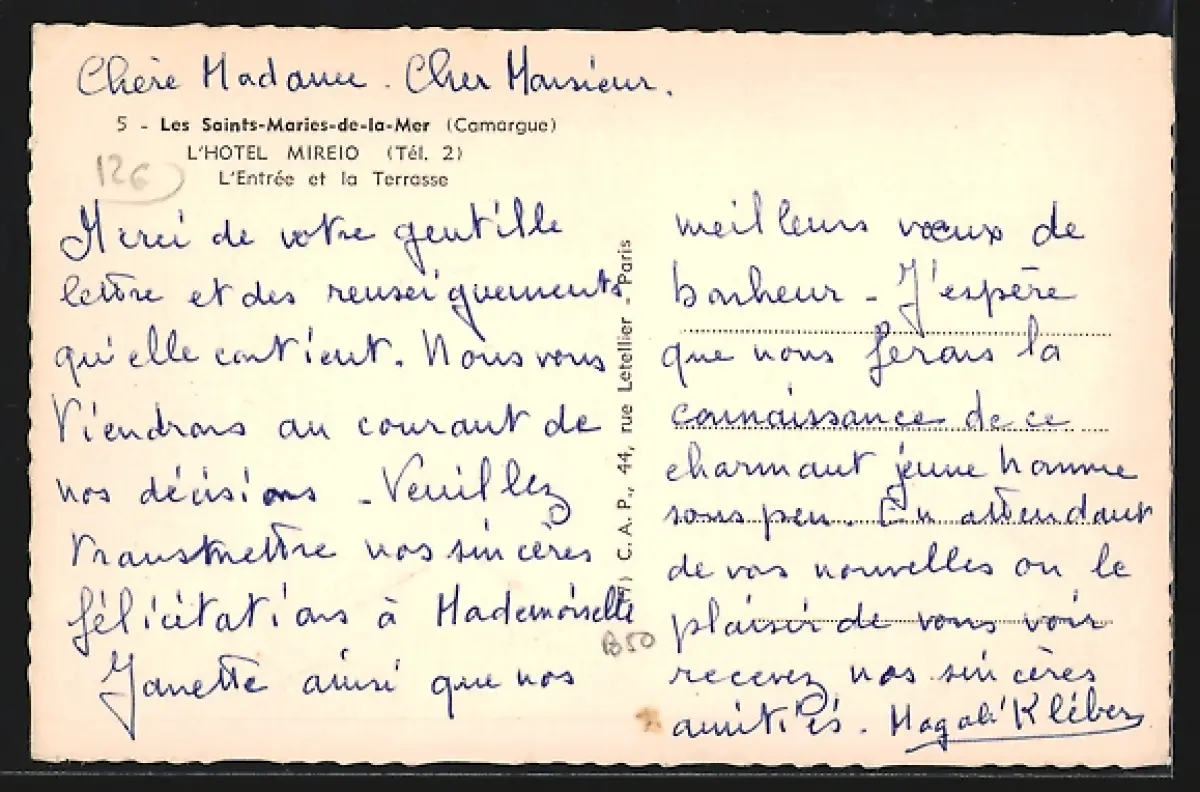 Chère Madame. Cher Monsieur.
5 - Les Saints-Maries-de-la-Mer (Camargue)
L'HOTEL MIREIO (Tél. 2)
L'Entrée et la Terrasse
126
Merci de votre gentille
lettre et des renseignements
qu'elle contient. Nous vous
Tiendrons au courant de
nos décisions - Veuillez
transmettre nos sincères
félicitations à Mademoiselle
Janette ainsi que nos
C. A. P., 44, rue Letellier - Paris
B50
meilleurs vœux de
bonheur - J'espère
que nous ferons la
connaissance de ce
charmant jeune homme
sous peu. En attendant
de vos nouvelles ou le
plaisir de vous voir
recevez nos sincères
amitiés. Magali Kléber